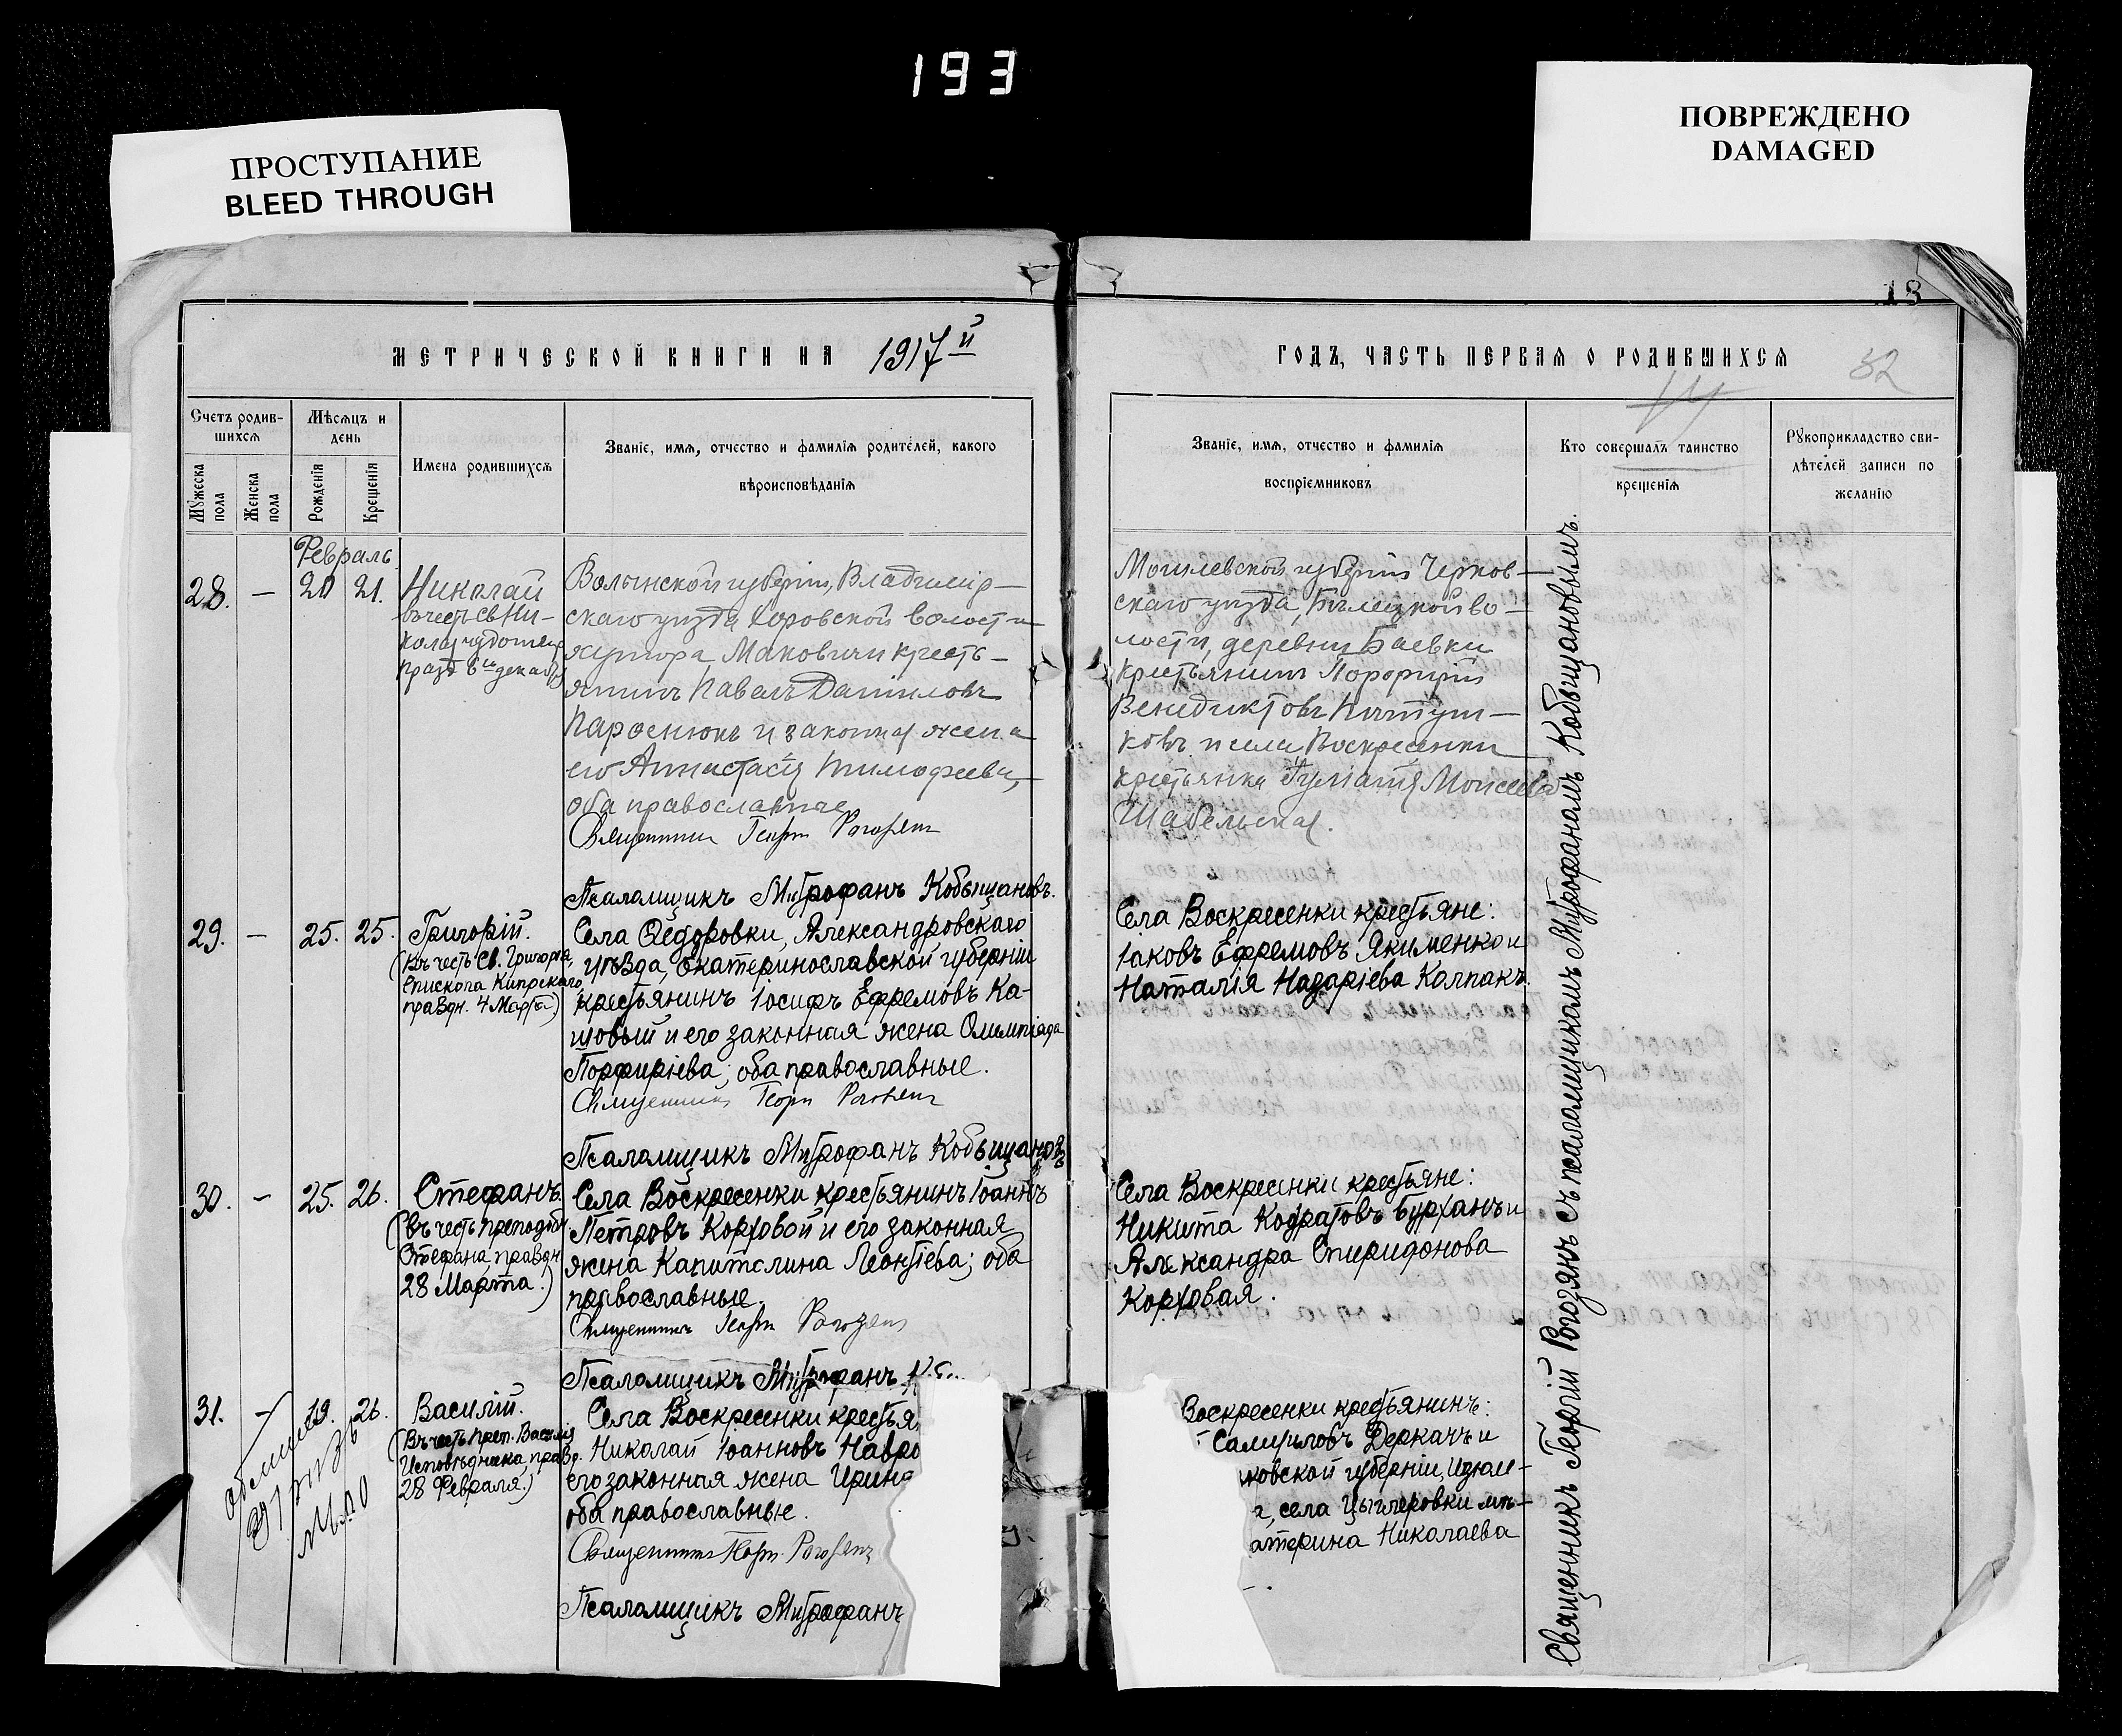 193
ПРОСТУПАНИЕ
BLEED THROUGH
ПОВРЕЖДЕНО
DAMAGED
18
32
МЕТРИЧЕСКОЙ КНИГИ НА 1917й
ГОДЪ, ЧАСТЬ ПЕРВАЯ О РОДИВШИХСЯ
Счетъ родив-
шихся
Мѣсяцъ и
день
Мужеска
пола
Женска
пола
Рожденія
Крещенія
Имена родившихся
Званіе, имя, отчество и фамилія родителей, какого
вѣроисповѣданія
Званіе, имя, отчество и фамилія
воспріемниковъ
Кто совершалъ таинство
крещенія
Рукоприкладство сви-
дѣтелей записи по
желанію
Февраль
28. — 20 21. Николай
въ честь св Ни-
колая чудотвор
празд 6го декабр
Волынской губерніи, Владимір-
скаго уѣзда Коровской волости
хутора Маковичи кресть-
янинъ Павелъ Даниловъ
Парфенюкъ и законная жена
его Анастасія Тимофеева,
оба православные
Священникъ Георгій Рогозянъ
Псаломщикъ Митрофанъ Кобыщановъ.
Могилевской губерніи Чериков-
скаго уѣзда, во-
лости, деревни Баевки
крестьянинъ Порфирій
Венедиктовъ
ковъ и села Воскресенки
крестьянка Моисеева
Шабельская.
29. — 25. 25. Григорій.
(въ честь св. Григорія,
Епископа Кипрскаго,
праздн. 4 Марта.)
Села Ѳедоровки, Александровскаго
уѣзда, Екатеринославской губерніи
крестьянинъ Іосифъ Ефремовъ Ка-
щовый и его законная жена Олимпіада
Порфиріева; оба православные.
Священникъ Георгій Рогозянъ
Псаломщикъ Митрофанъ Кобыщановъ
Села Воскресенки крестьяне:
Іаковъ Ефремовъ Якименко и
Наталія Назаріева Колпакъ.
30. — 25. 26. Стефанъ.
(въ честь преподобн.
Стефана, праздн.
28 Марта.)
Села Воскресенки крестьянинъ Іоаннъ
Петровъ Корховой и его законная
жена Капитолина Леонтіева; оба
православные.
Священникъ Георгій Рогозянъ
Псаломщикъ Митрофанъ
Села Воскресенки крестьяне:
Никита Кодратовъ Бурханъ и
Александра Спиридонова
Корховая.
31. — 19. 26. Василій.
(въ честь преп. Василія
Исповѣдника, празд.
28 Февраля.)
Села Воскресенки крестья
Николай Іоанновъ Навро
его законная жена Ирина
оба православные.
Священникъ Георг. Рогозянъ
Псаломщикъ Митрофанъ
Воскресенки крестьянинъ:
Самуиловъ Деркачъ и
ковской губерніи, Изюм-
а, села Цыглеровки мѣ-
атерина Николаева
Священникъ Георгій Рогозянъ съ псаломщикомъ Митрофаномъ Кобыщановымъ.